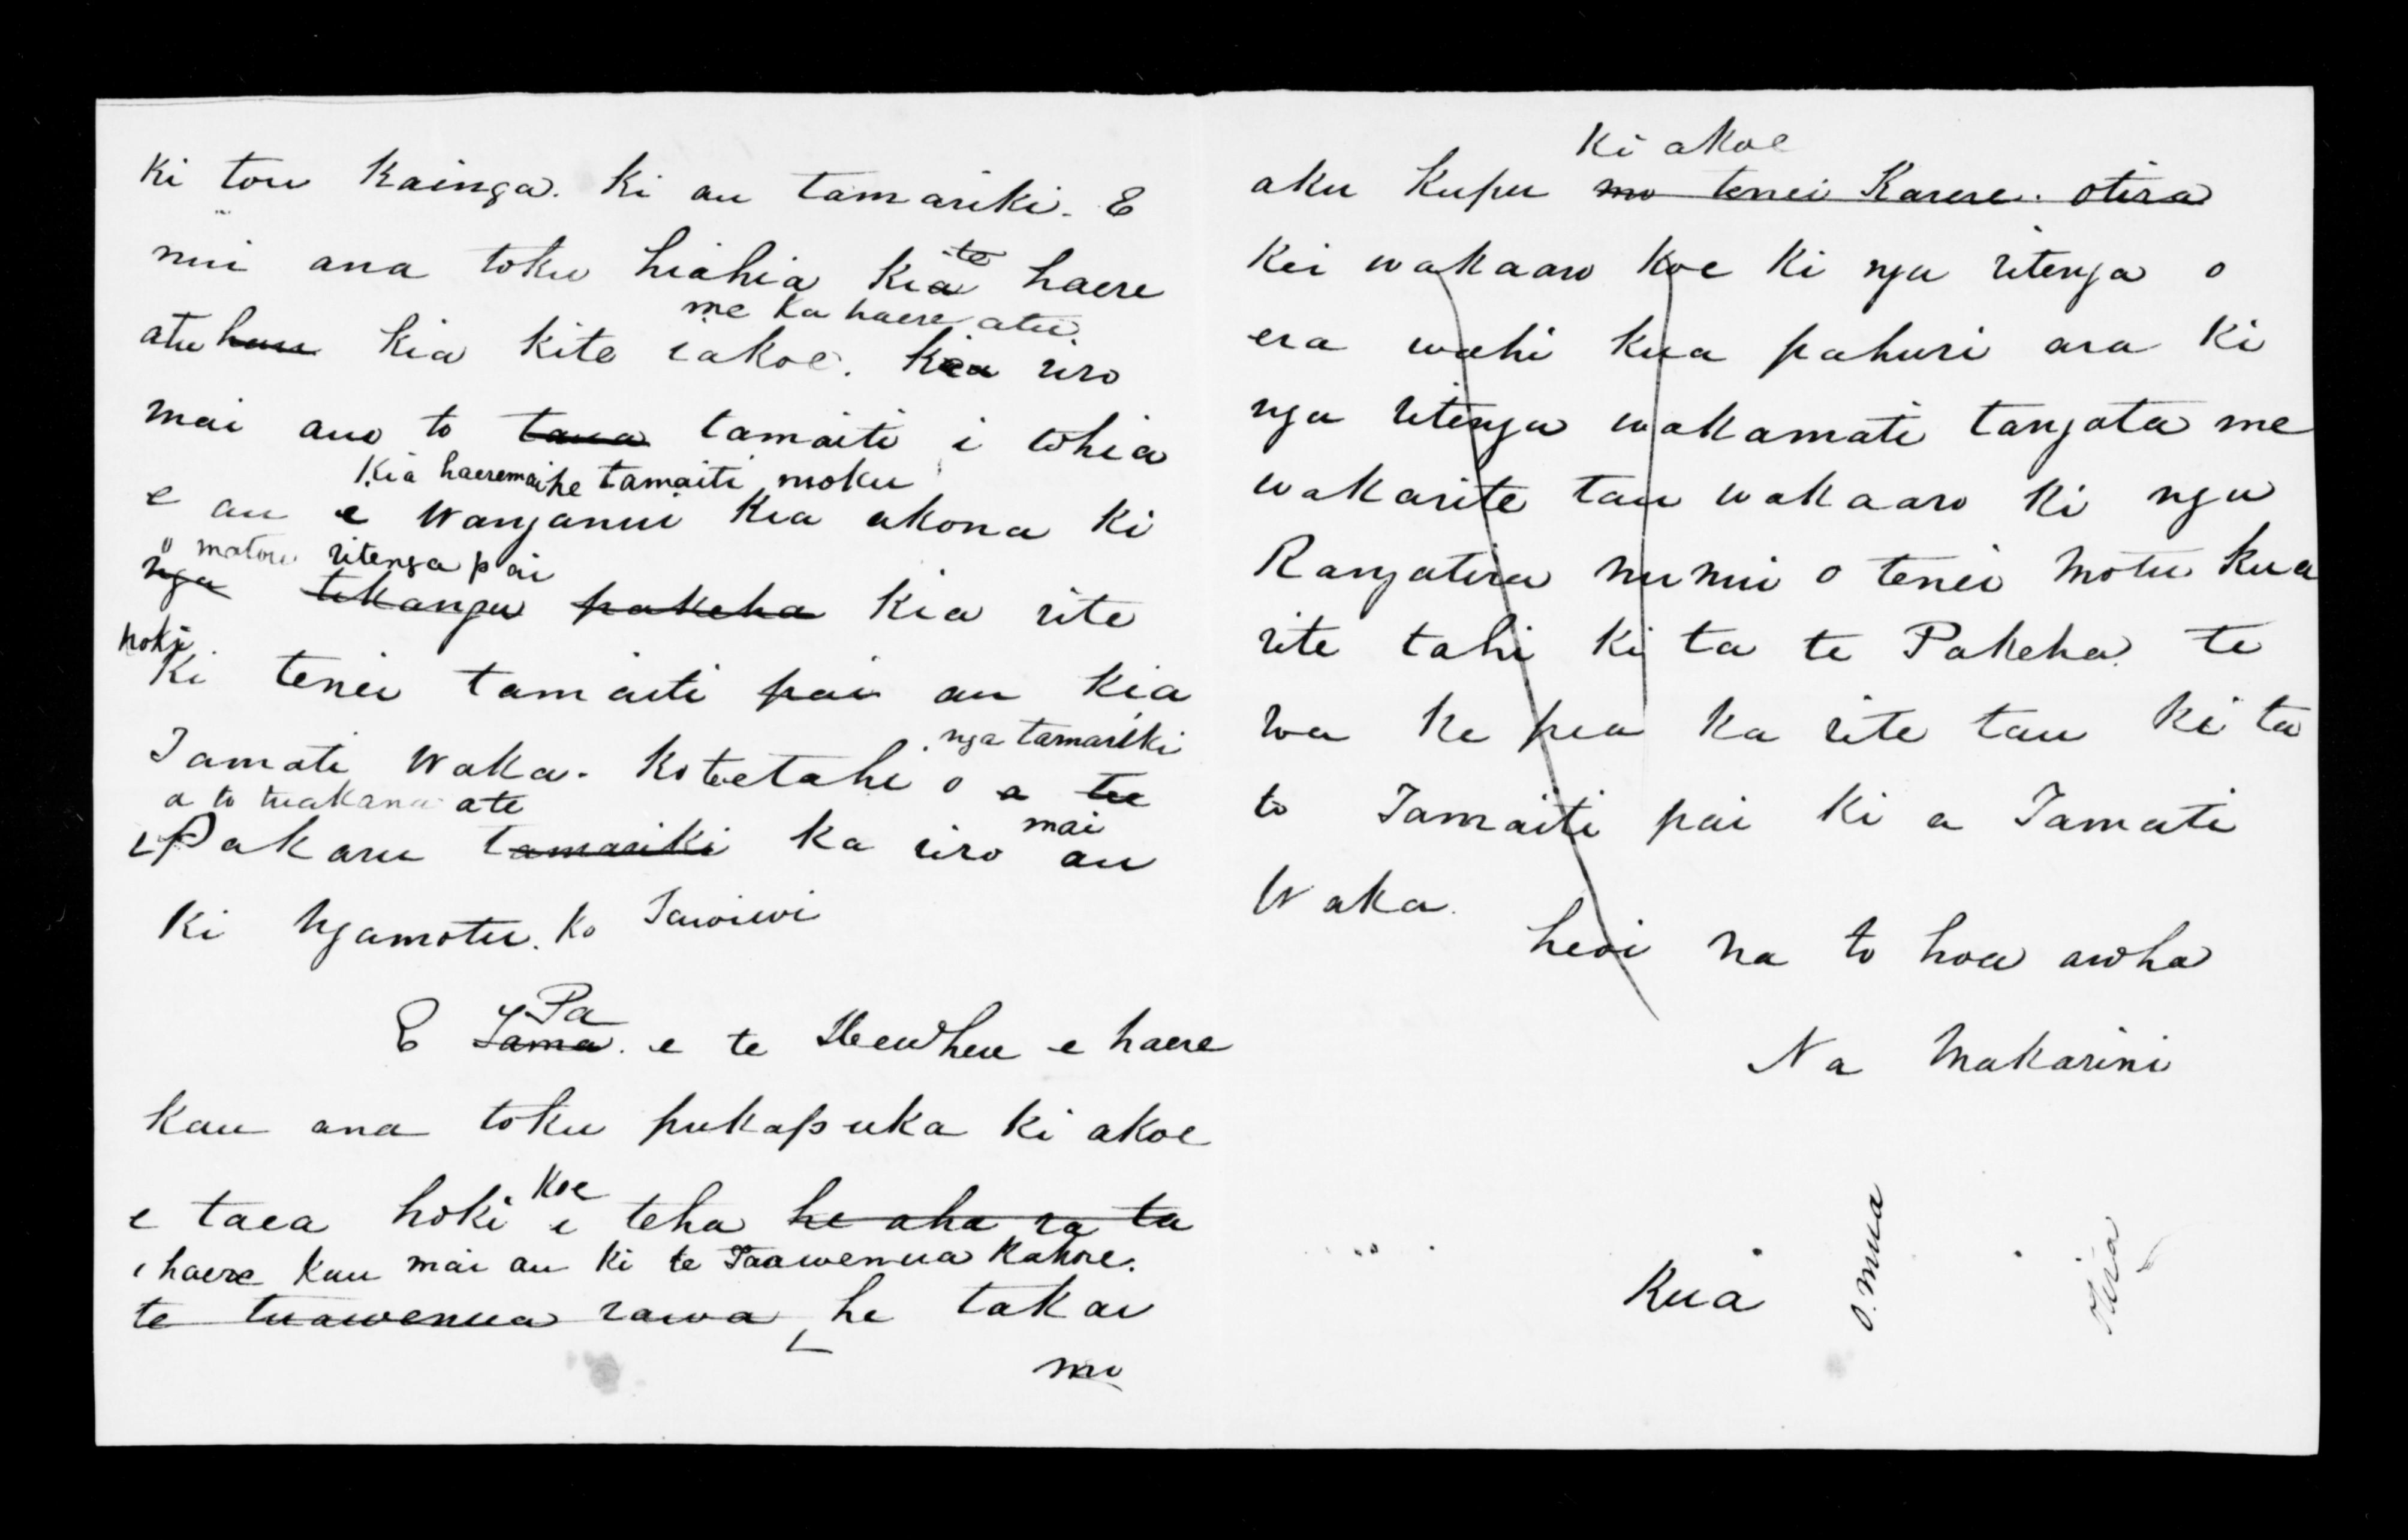 ki tou kainga. ki au tamariki. E
nui ana toku hiahia kia te haere
me ka haere atu.
atu hau kia kite iakoe. kia riro
mai ano to taua tamaiti i tohia
Kia haeremai he tamaiti moku
e au e Wanganui kia akona ki
o matou ritenga pai
nga tikanga pakeha kia rite
hoki
ki tenei tamaiti pai au kia
nga tamariki
Tamati Waka. ko tetahi o a te
a to tuakana a te
Pakaru tamariki ka riro mai au
ki Ngamotu. ko Tawiwi
Pa
E Tama. e te Heuheu e haere
kau ana toku pukapuka ki akoe
koe
e taea hoki i teha he aha ra ta
i haere kau mai au ki te Taawenua kahore.
te tuawenua rawa he takai
mo
ki akoe
aku kupu mo tenei Karere. otira
kei wakaaro koe ki nga ritenga o
era wahi kua pahuri ara ki
nga ritenga wakamate tangata me
wakarite tau wakaaro ki nga
Rangatira nunui o tenei motu kua
rite tahi ki ta te Pakeha te
wa ke pea ka rite tau ki ta
to Tamaiti pai ki a Tamati
Waka.
heoi na to hoa aroha
Na Makarini
Kua
o mua
otira